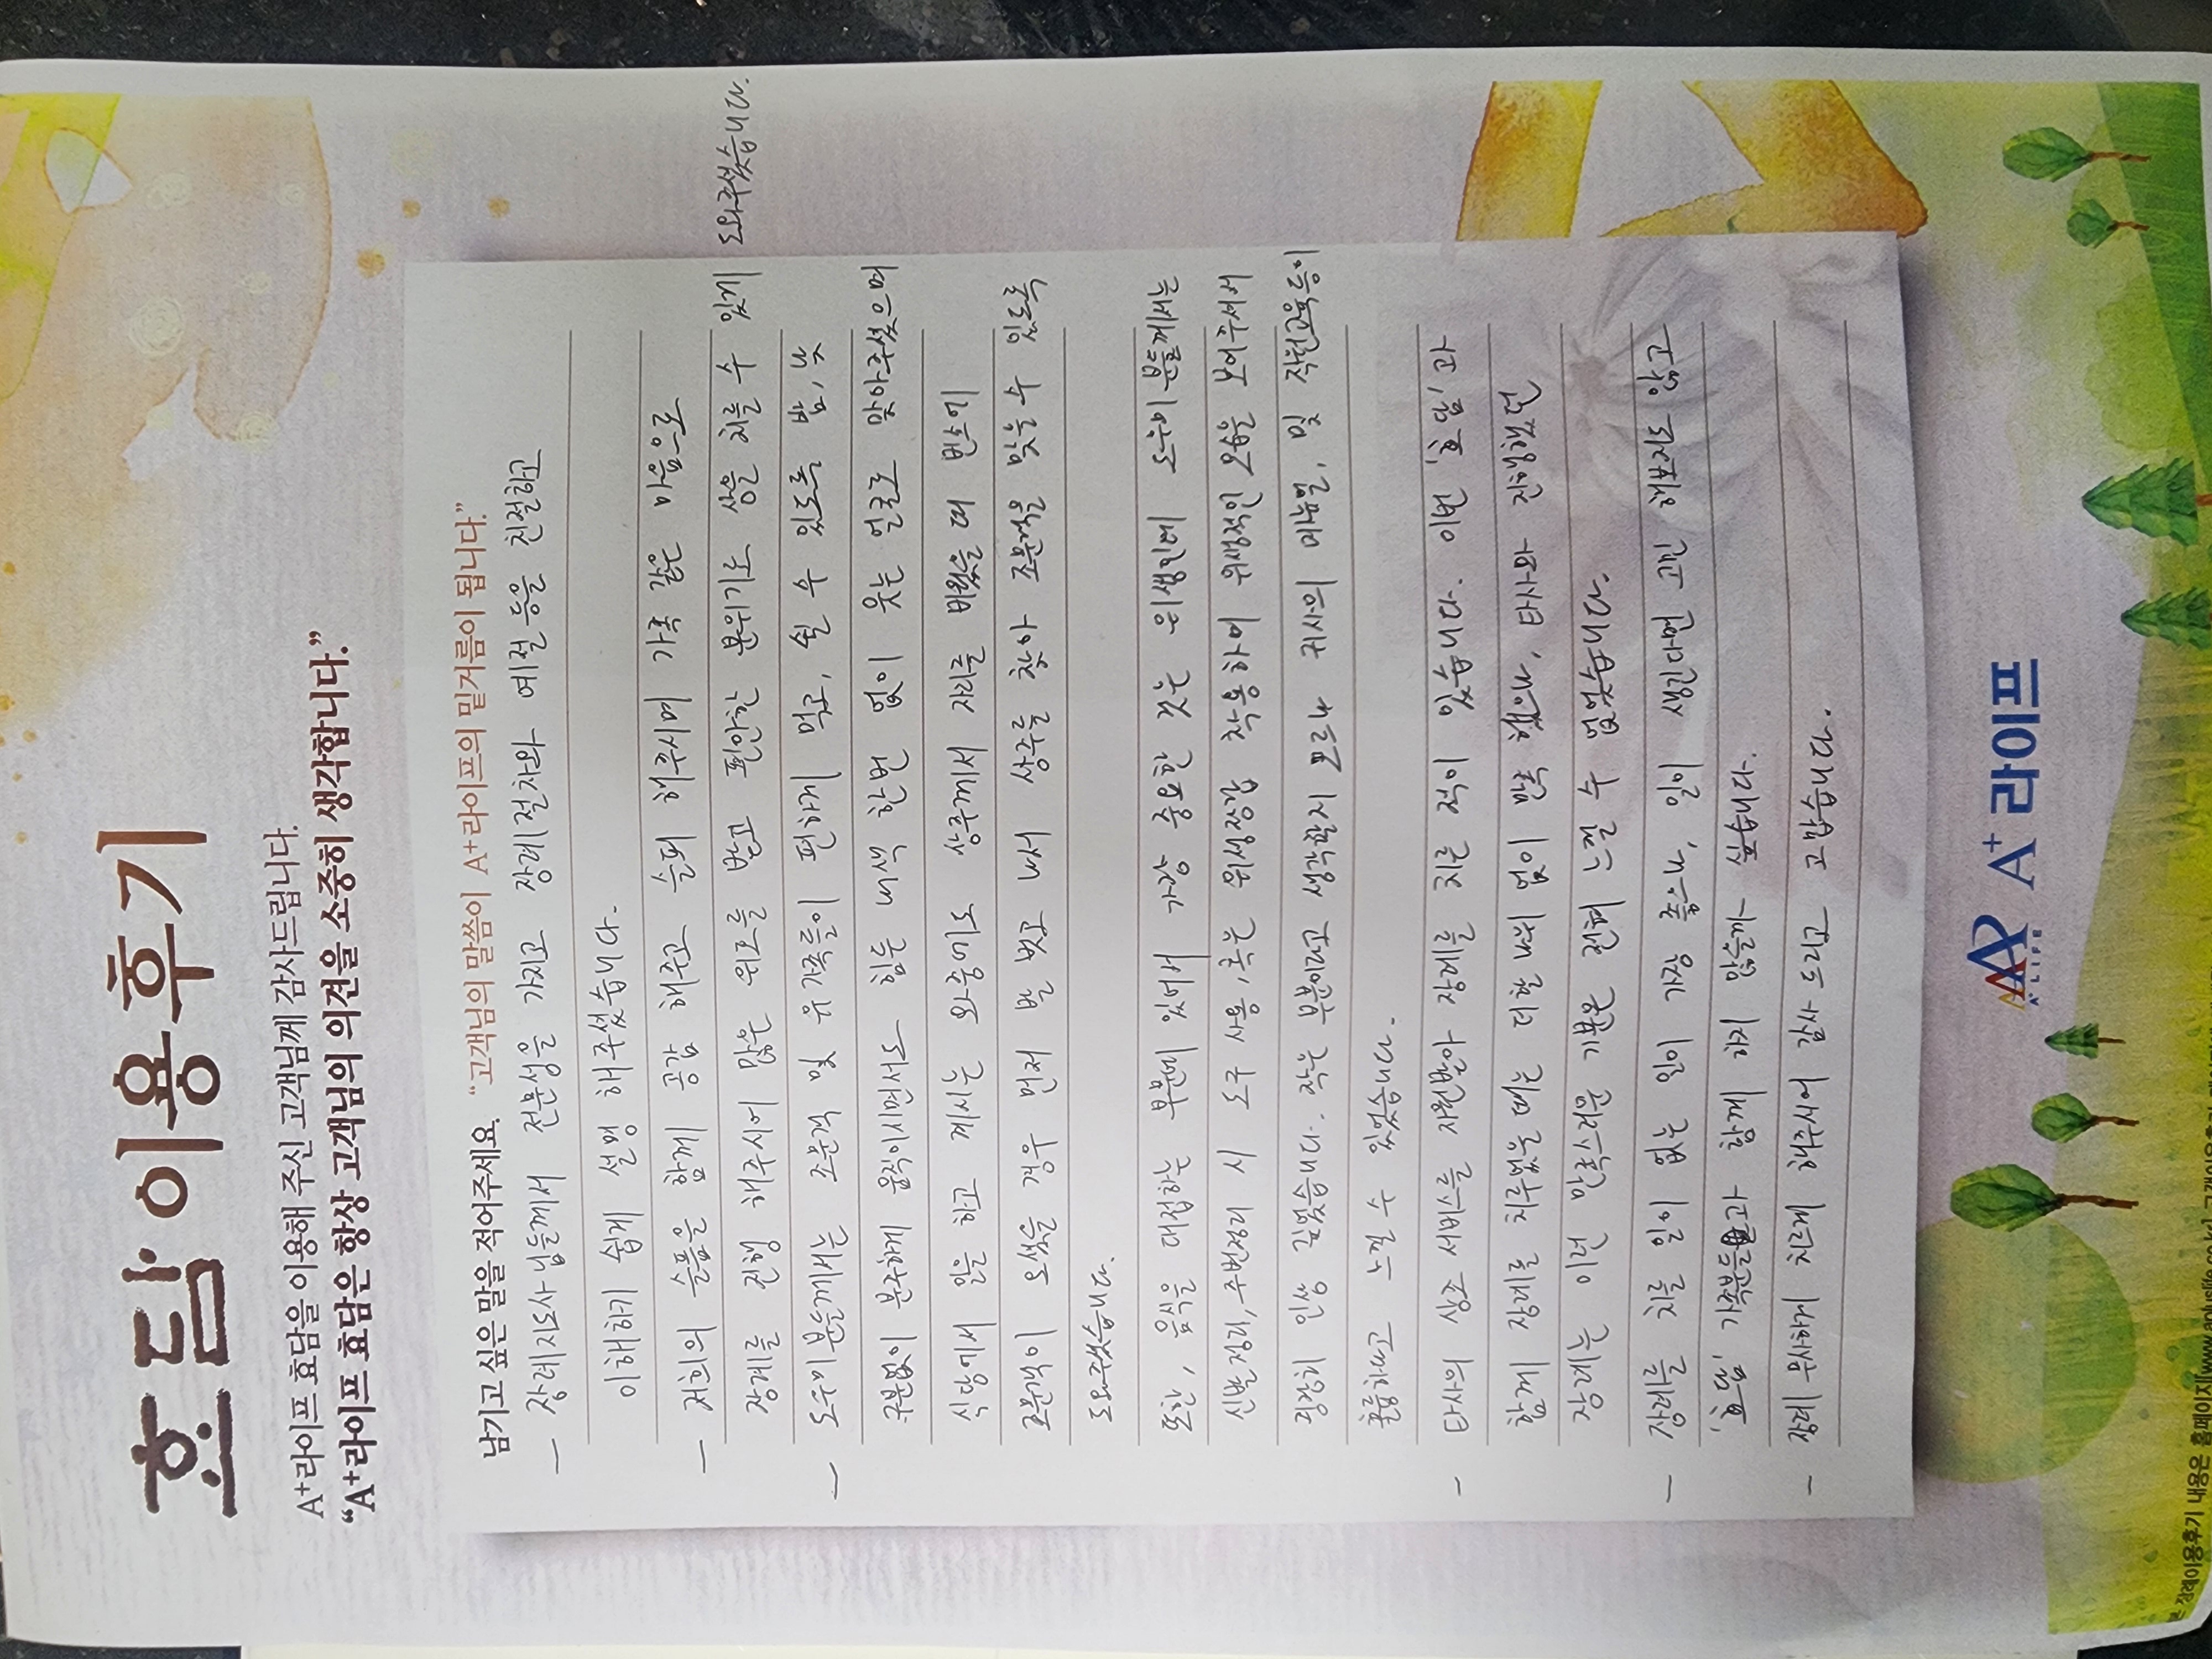 효담 이용후기
A⁺라이프 효담을 이용해 주신 고객님께 감사드립니다.
“A⁺라이프 효담은 항상 고객님의 의견을 소중히 생각합니다.”
남기고 싶은 말을 적어주세요. “고객님의 말씀이 A⁺라이프의 밑거름이 됩니다.”
— 장례지도사님들께서 전문성을 가지고 장례절차와 예절 등을 친절하고
이해하기 쉽게 설명 해주셨습니다.
— 저희의 슬픔을 함께 공감 해주고 슬퍼 해주시며 가족 같은 마음으로
장례를 진행 해주시어 많은 위로를 받고 편안한 분위기로 상을 치를 수 있게 도와주셨습니다.
— 도우미분들께서는 조문객 및 유가족들이 편하게 먹고, 쉴 수 있도록 밤, 낮
구분없이 분주하게 움직이시면서도 힘든 내색 한번 없이 웃는 얼굴로 맞아주셨으며
식당에서 일을 하고 계시는 와중에도 상주께서 자리를 비웠을 때 빈소에
조문객이 오셨을 경우 먼저 발 벗고 나서 상주를 찾아 조문객을 맞을 수 있도록
도와주셨습니다.
또한, 음식을 대접하는 부분에 있어서 가장 중요한 것은 위생인데 도우미분들께서는
신발정리, 주변정리 시 도구 사용, 혹은 위생장갑 착용하여 위생적인 모습을 보여주셔서
굉장히 인상 깊었습니다. 작은 부분이라고 생각할지 모르나 귀사의 매뉴얼, 및 직원교육등이
훌륭하다고 느낄 수 있었습니다.
- 타사의 상조 서비스를 지원받아 장례를 치른 적이 있습니다. 이번 '효담'과
함께 장례를 치루었을 때는 더할 나위 없이 만족 했으나, 타사와 진행했던
장례는 이런 만족스러운 기분은 전혀 느낄 수 없었습니다.
— 장례를 치를 일이 없는 일이 가장 좋으나, 일이 생긴다면 고민 해보지도 않고
'효담' 가족분들과 함께 하지 않을까 싶습니다.
- 장례 무사하게 치르게 해주시어 감사 드리고 고맙습니다.
A⁺ LIFE A⁺ 라이프